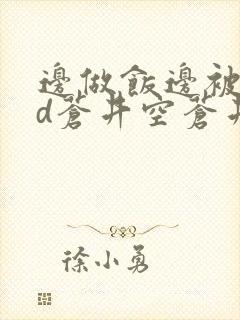 邊做飯邊被
d蒼井空蒼井
徐小勇